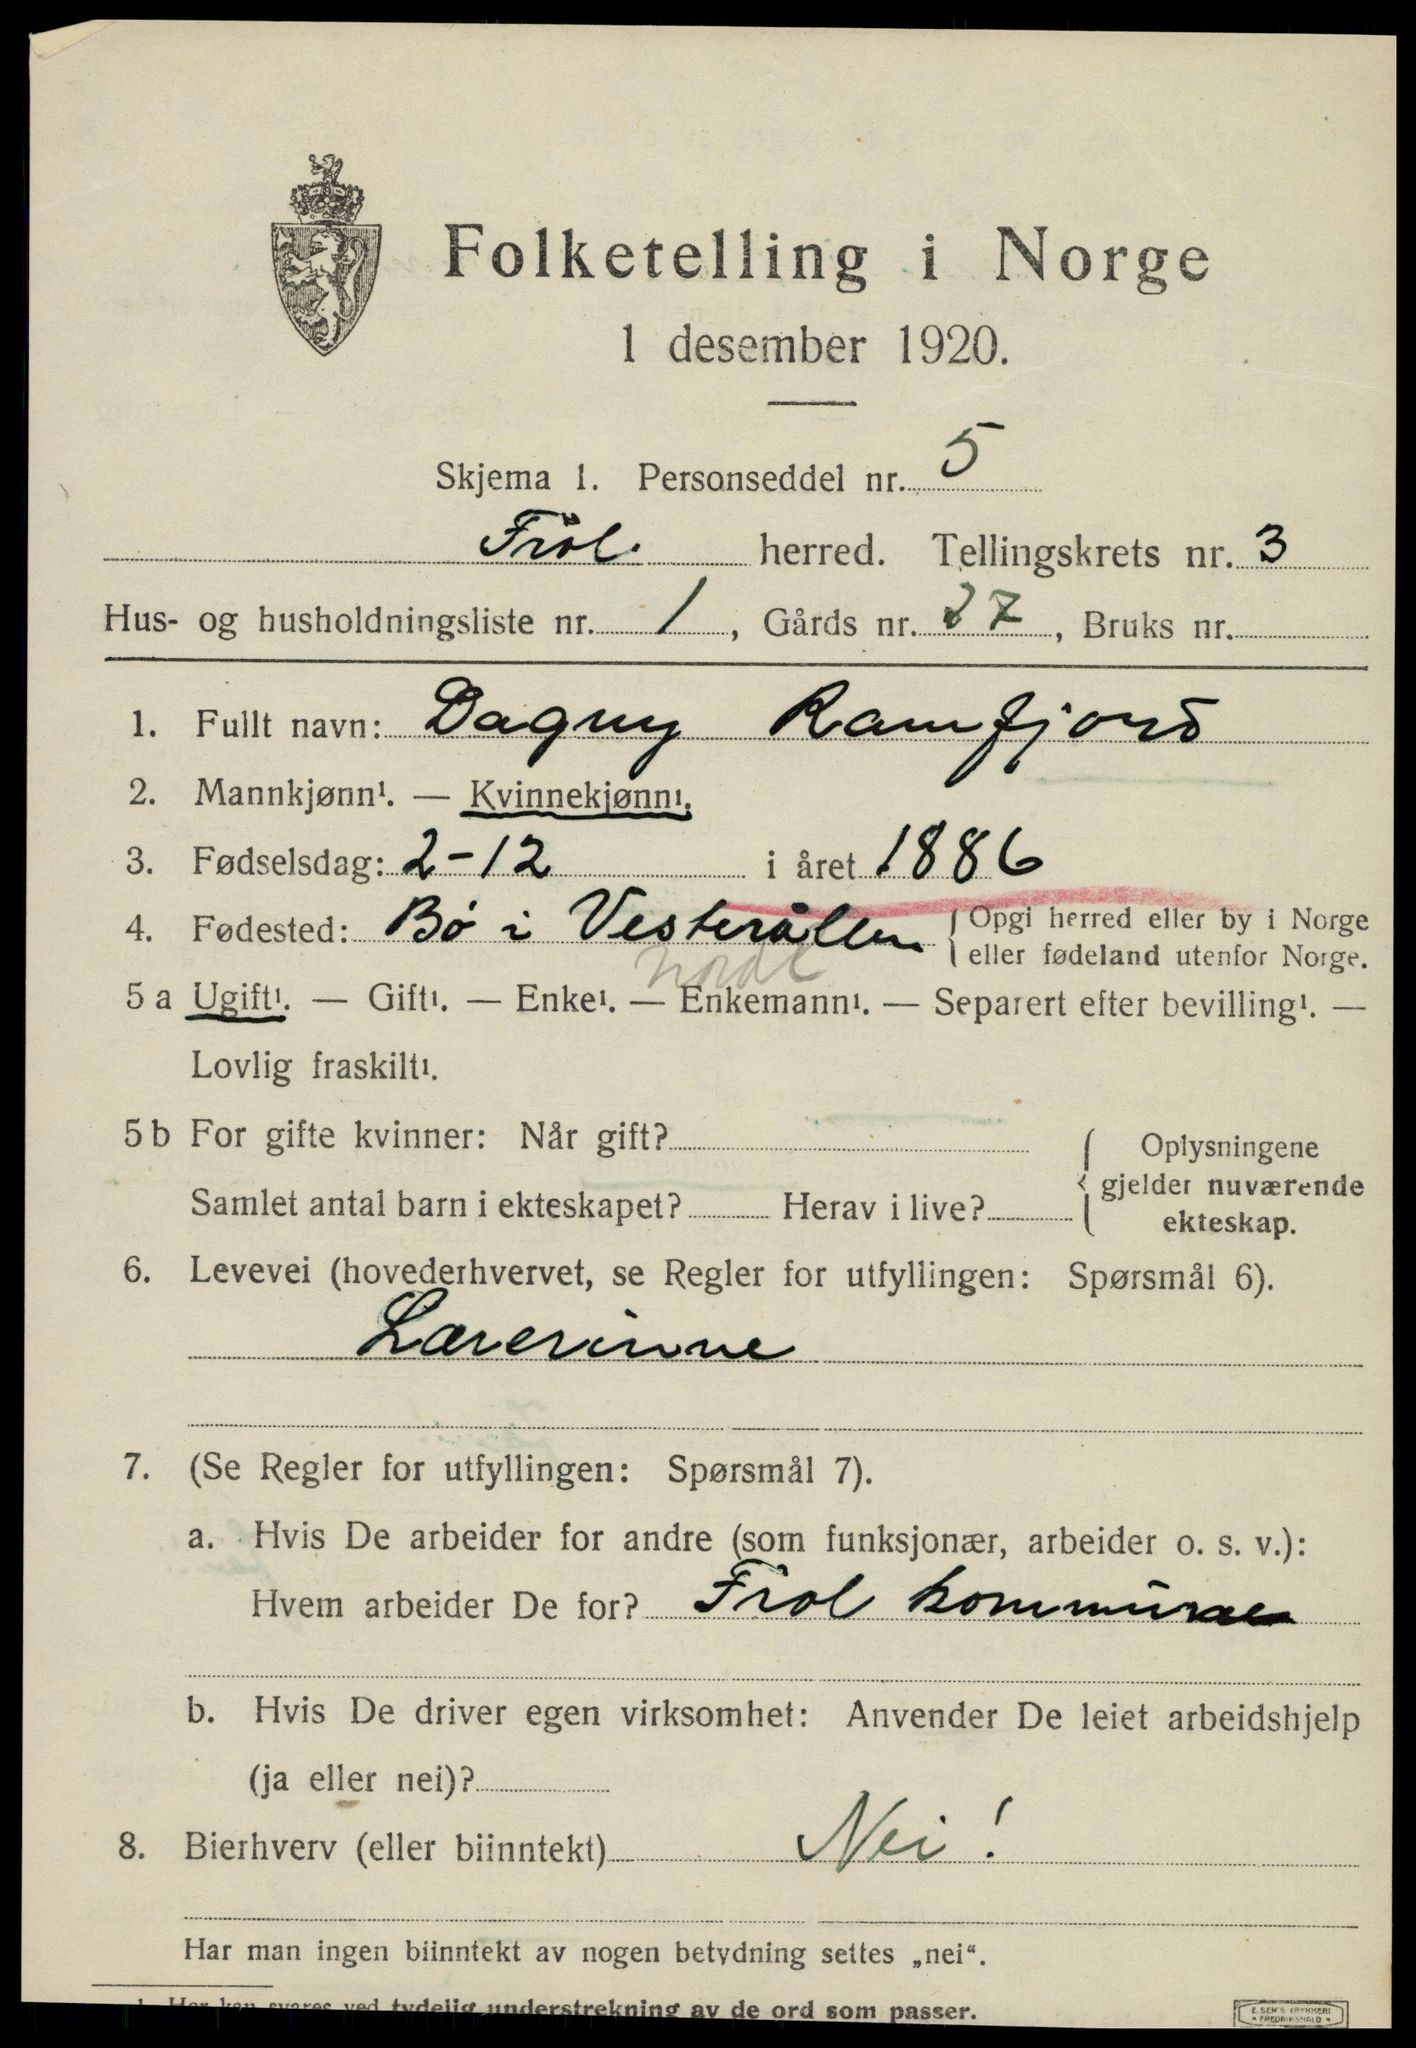 Folketelling i Norge
1 desember 1920.
Skjema 1. Personseddel nr. 5
Frol herred. Tellingskrets nr. 3
Hus- og husholdningsliste nr. 1, Gårds nr. 27, Bruks nr.
1. Fullt navn: Dagny Ramfjord
2. Mannkjønn¹. — Kvinnekjønn¹.
3. Fødselsdag: 2-12 i året 1886
4. Fødested: Bø i Vesterållen { Opgi herred eller by i Norge
eller fødeland utenfor Norge.
Nordl
5 a Ugift¹. — Gift¹. — Enke¹. — Enkemann¹. — Separert efter bevilling¹. —
Lovlig fraskilt¹.
5 b For gifte kvinner: Når gift?
Samlet antal barn i ekteskapet? Herav i live?
{ Oplysningene
gjelder nuværende
ekteskap.
6. Levevei (hovederhvervet, se Regler for utfyllingen: Spørsmål 6).
Lærerinne
7. (Se Regler for utfyllingen: Spørsmål 7).
a. Hvis De arbeider for andre (som funksjonær, arbeider o. s. v.):
Hvem arbeider De for? Frol kommune
b. Hvis De driver egen virksomhet: Anvender De leiet arbeidshjelp
(ja eller nei)?
8. Bierhverv (eller biinntekt) Nei!
Har man ingen biinntekt av nogen betydning settes „nei“.
¹ Her kan svares ved tydelig understrekning av de ord som passer.
E. SEM'S TRYKKERI
FREDRIKSHALD